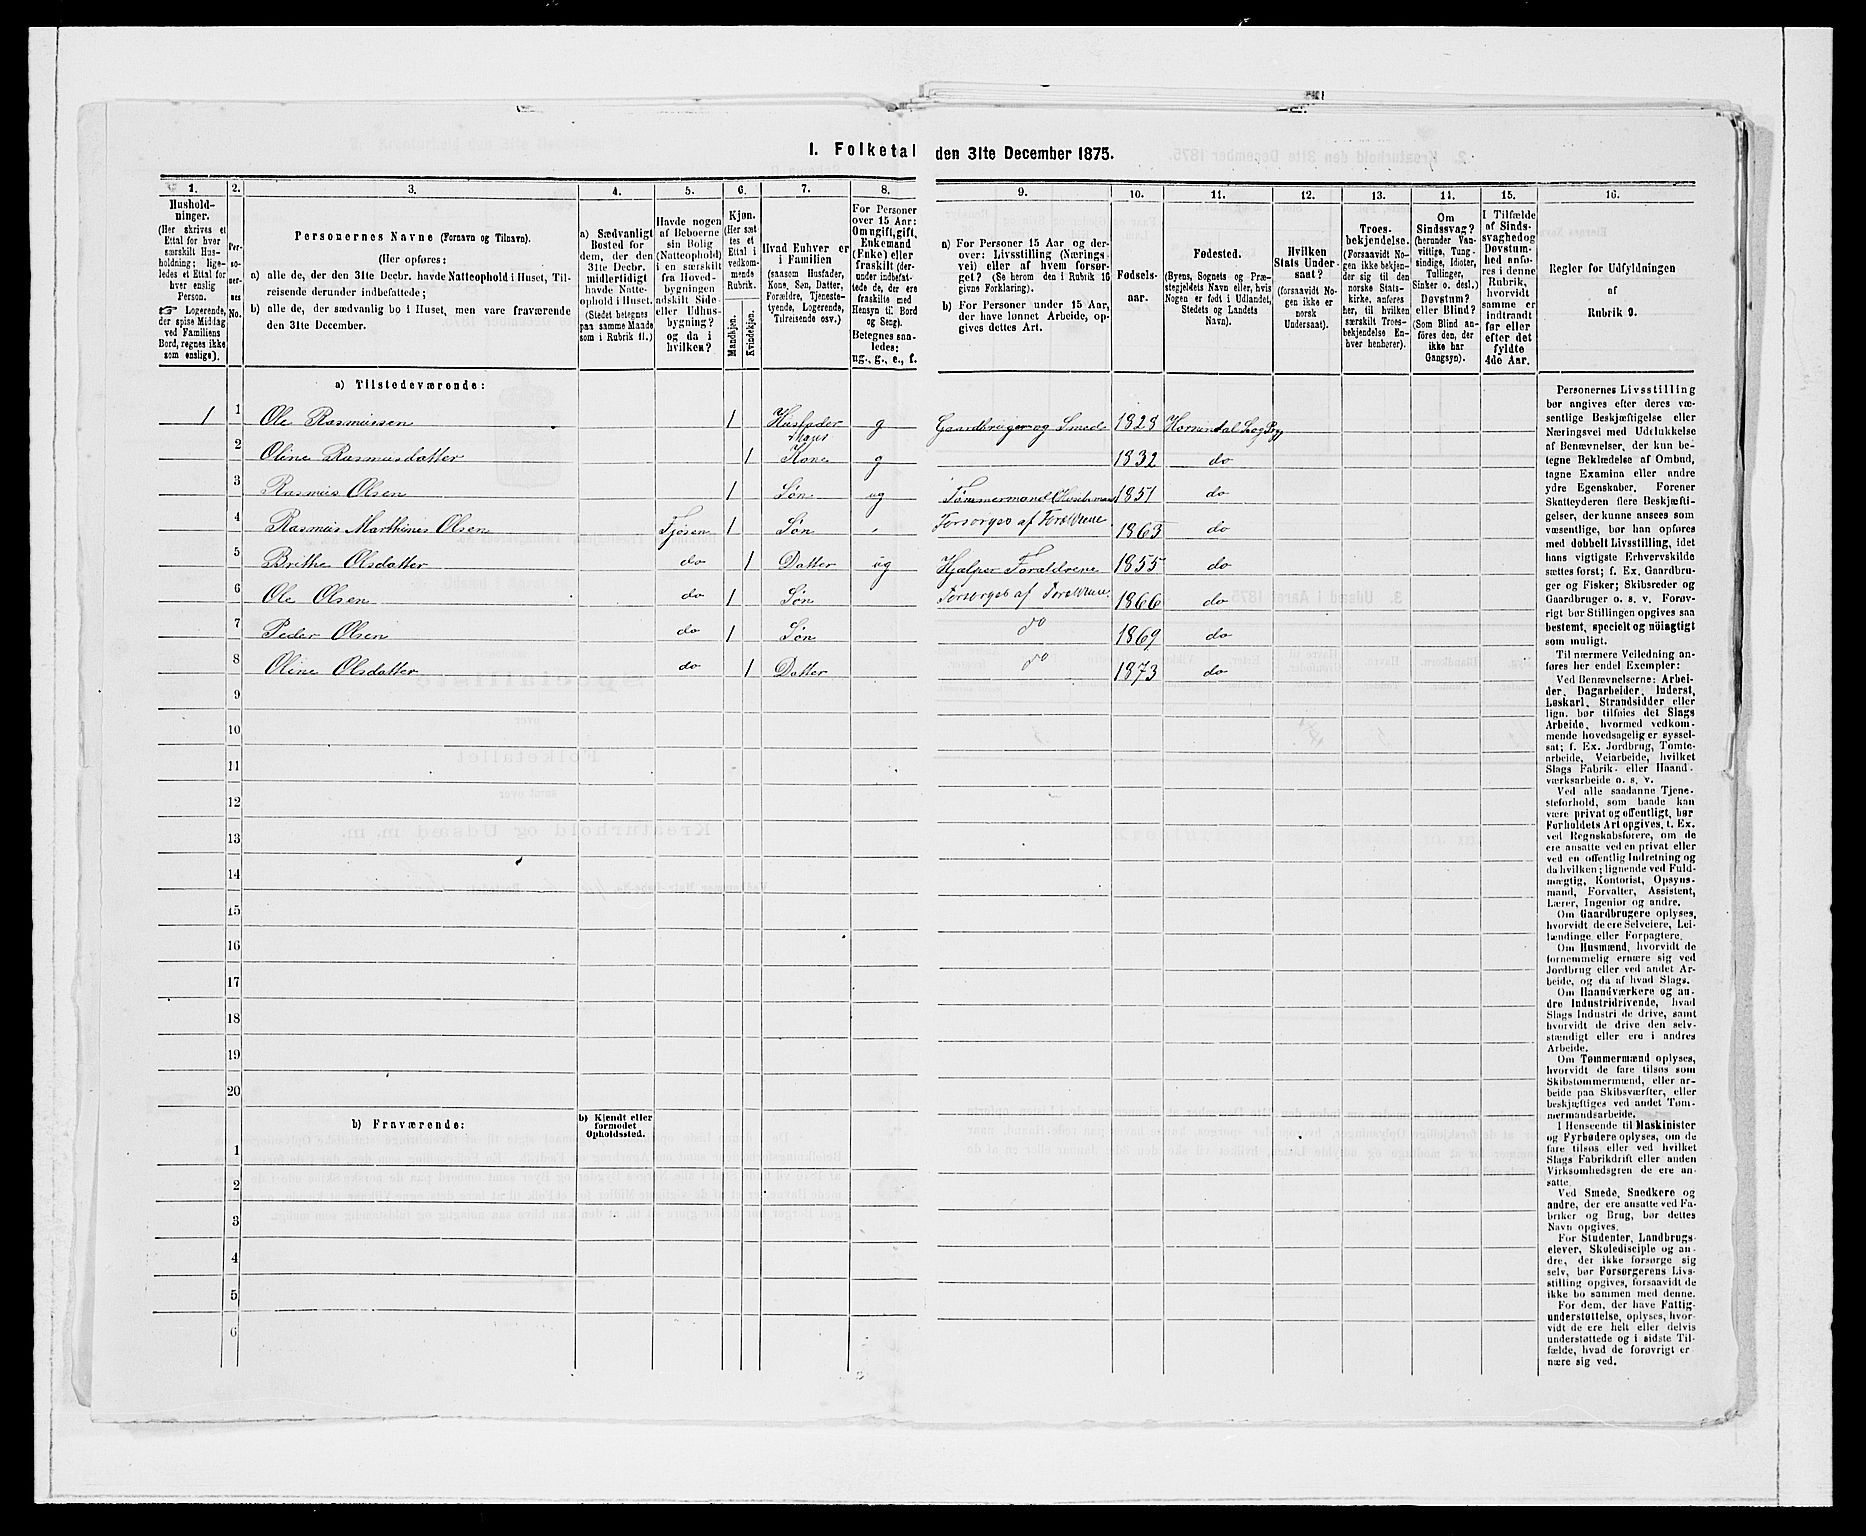 1. Folketal den 31te December 1875.
1.
Hushold-
ninger.
(Her skrives et
Ettal for hver
særskilt Hus-
holdning; lige-
ledes et Ettal for
hver enslig
Person.
☞ Logerende,
der spise Middag
ved Familiens
Bord, regnes ikke
som enslige).
2.
Per-
so-
ner-
nes
No.
3.
Personernes Navne (Fornavn og Tilnavn).
(Her opføres:
a) alle de, der den 31te Decbr. havde Natteophold i Huset, Til-
reisende derunder indbefattede;
b) alle de, der sædvanlig bo i Huset, men vare fraværende
den 31te December.
4.
a) Sædvanligt
Bosted for
dem, der den
31te Decbr.
midlertidigt
havde Natte-
ophold i Huset.
(Stedet betegnes
paa samme Maade
som i Rubrik 11.)
5.
Havde nogen
af Beboerne
sin Bolig
(Natteophold)
i en særskilt
fra Hoved-
bygningen
adskilt Side-
eller Udhus-
bygning?
og da i
hvilken?
6.
Kjøn.
(Her sæt-
tes et
Ettal i
vedkom-
mende
Rubrik.
Mandkjøn.
Kvindekjøn.
7.
Hvad Enhver er
i Familien
(saasom Husfader,
Kone, Søn, Datter,
Forældre, Tjeneste-
tyende, Logerende,
Tilreisende osv.)
8.
For Personer
over 15 Aar:
Om ugift, gift,
Enkemand
(Enke) eller
fraskilt (der-
under indbefat-
tede de, der ere
fraskilte med
Hensyn til Bord
og Seng).
Betegnes saa-
ledes:
ug., g., e., f.
9.
a) For Personer 15 Aar og der-
over: Livsstilling (Nærings-
vei) eller af hvem forsør-
get? (Se herom den i Rubrik 16
givne Forklaring).
b) For Personer under 15 Aar,
der have lønnet Arbeide, op-
gives dettes Art.
10.
Fødsels-
aar.
11.
Fødested.
(Byens, Sognets og Præ-
stegjeldets Navn eller, hvis
Nogen er født i Udlandet,
Stedets og Landets
Navn).
12.
Hvilken
Stats Under-
saat?
(forsaavidt No-
gen ikke er
norsk
Undersaat).
13.
Troes-
bekjendelse.
(Forsaavidt No-
gen ikke bekjen-
der sig til den
norske Stats-
kirke, anføres
her, til hvilken
særskilt Troes-
bekjendelse En-
hver henhører).
14.
Om
Sindssvag?
(herunder Van-
vittige, Tung-
sindige, Idioter,
Tullinger,
Sinker o. desl.)
Døvstum?
eller Blind?
(Som Blind an-
føres den, der
ikke har
Gangsyn).
15.
I Tilfælde
af Sinds-
svaghed og
Døvstum-
hed anfø-
res i denne
Rubrik,
hvorvidt
samme er
indtraadt
før eller
efter det
fyldte
4de Aar.
16.
Regler for Udfyldningen
af
Rubrik 9.
a) Tilstedeværende:
1 1 Ole Rasmussen 1 Husfader g Gaardbruger og Smed 1828 Hornindal Sog Prgj
2 Oline Rasmusdatter 1 Hans Kone g 1832 do
3 Rasmus Olsen 1 Søn ug Tømmermand 1851 do
4 Rasmus Marthines Olsen Fjøsen 1 Søn Forsørges af Forældrene 1863 do
5 Brithe Olsdatter do 1 Datter ug Hjælper Forældrene 1855 do
6 Ole Olsen do 1 Søn Forsørges af Forældrene 1866 do
7 Peder Olsen do 1 Søn do 1869 do
8 Oline Olsdatter do 1 Datter do 1873 do
9
10
11
12
13
14
15
16
17
18
19
20
b) Fraværende:
b) Kjendt eller
formodet
Opholdssted.
1
2
3
4
5
6
Personernes Livsstilling
bør angives efter deres væ-
sentlige Beskjæftigelse eller
Næringsvei med Udelukkelse
af Benævnelser, der kun be-
tegne Beklædelse af Ombud,
tagne Examina eller andre
ydre Egenskaber. Forener
Skatteyderen flere Beskjæfti-
gelser, der kunne ansees som
væsentlige, bør han opføres
med dobbelt Livsstilling, idet
hans vigtigste Erhvervskilde
sættes først; f. Ex. Gaardbru-
ger og Fisker; Skibsreder og
Gaardbruger o. s. v. Forøv-
rigt bør Stillingen opgives saa
bestemt, specielt og nøiagtigt
som muligt.
Til nærmere Veiledning an-
føres her endel Exempler:
Ved Benævnelserne: Arbei-
der, Dagarbeider, Inderst,
Løskarl, Strandsidder eller
lign. bør tilføies det Slags
Arbeide, hvormed vedkom-
mende hovedsagelig er syssel-
sat; f. Ex. Jordbrug, Tomte-
arbeide, Veiarbeide, hvilket
Slags Fabrik- eller Haand-
værksarbeide o. s. v.
Ved alle saadanne Tjene-
steforhold, som baade kan
være privat og offentligt, bør
Forholdets Art opgives, t. Ex.
ved Regnskabsførere, om de
ere ansatte ved en privat eller
ved en offentlig Indretning og
da hvilken; lignende ved Fuld-
mægtig, Kontorist, Opsyns-
mand, Forvalter, Assistent,
Lærer, Ingeniør og andre.
Om Gaardbrugere oplyses,
hvorvidt de ere Selveiere, Lei-
lændinge eller Forpagtere.
Om Husmænd, hvorvidt de
fornemmelig ernære sig ved
Jordbrug eller ved andet Ar-
beide, og da af hvad Slags.
Om Haandværkere og an-
dre Industridrivende, hvad
Slags Industri de drive, samt
hvorvidt de drive den selv-
stændigt eller ere i andres
Arbeide.
Om Tømmermænd oplyses,
hvorvidt de fare tilsøs som
Skibstømmermænd, eller ar-
beide paa Skibsværfter, eller
beskjæftiges ved andet Tøm-
mermandsarbeide.
I Henseende til Maskinister
og Fyrbødere oplyses, om de
fare tilsøs eller ved hvilket
Slags Fabrikdrift eller anden
Virksomhedsgren de ere an-
satte.
Ved Smede, Snedkere og
andre, der ere ansatte ved Fa-
briker og Brug, bør dettes
Navn opgives.
For Studenter, Landbrugs-
elever, Skoledisciple og an-
dre, der ikke forsørge sig
selv, bør Forsørgerens Livs-
stilling opgives, forsaavidt de
ikke bo sammen med denne.
For dem, der have Fattig-
understøttelse, oplyses, hvor-
vidt de ere helt eller delvis
understøttede og i sidste Til-
fælde, hvad de forøvrigt er-
nære sig ved.